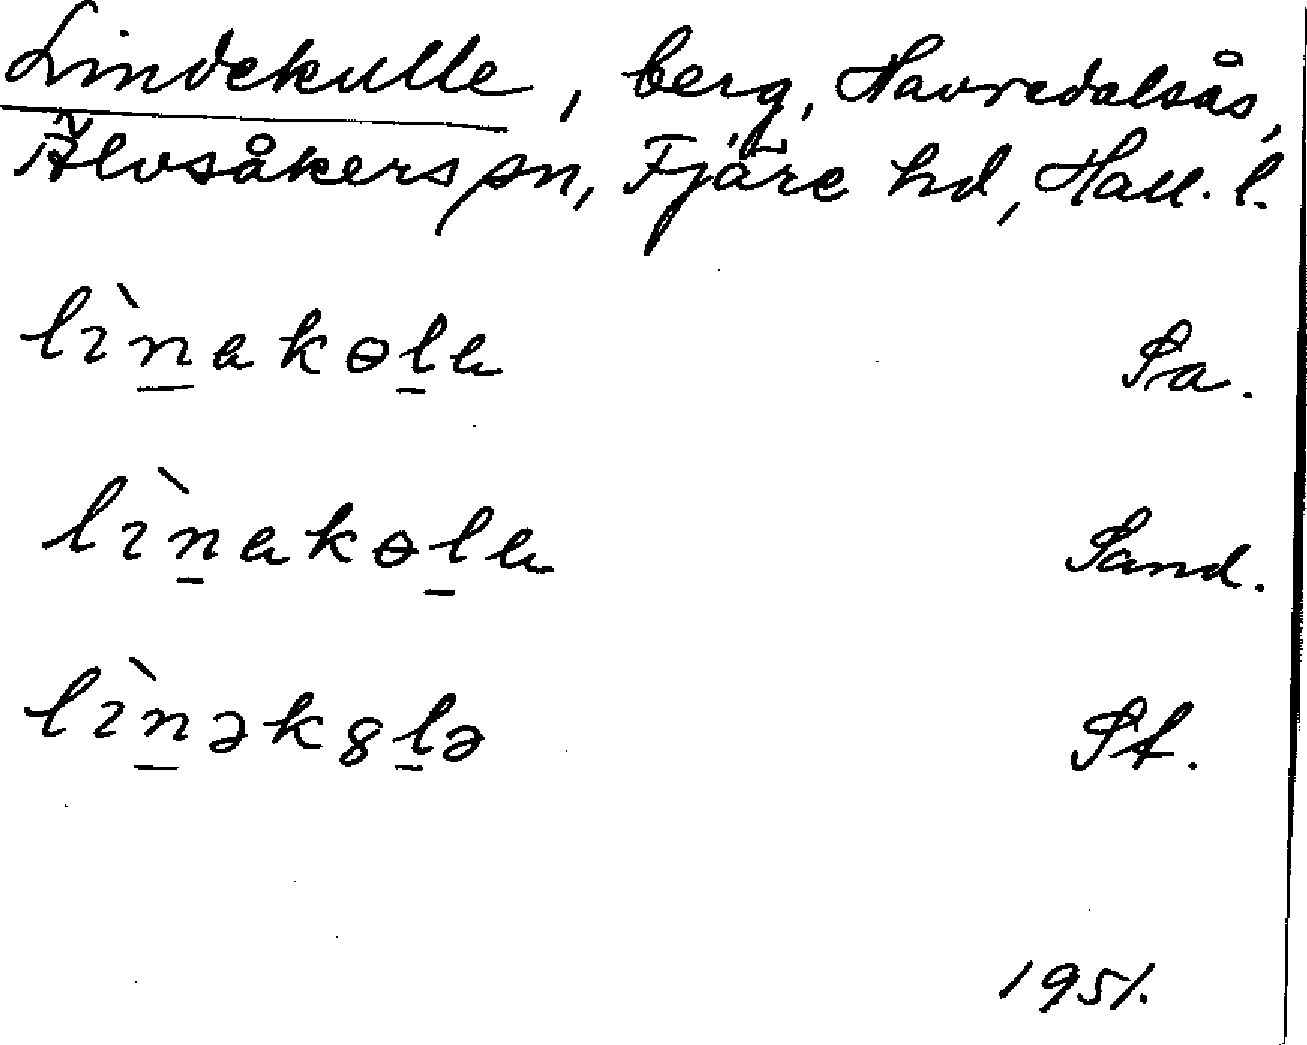 Lindekulle, berg, Havredalsås,
Älvsåkers sn, Fjäre hd, Hall. l.
lìn̲akɵl̲a Sa.
lìn̲akɵl̲a Sand.
lìn̲ək8l̲ə St.
1951.